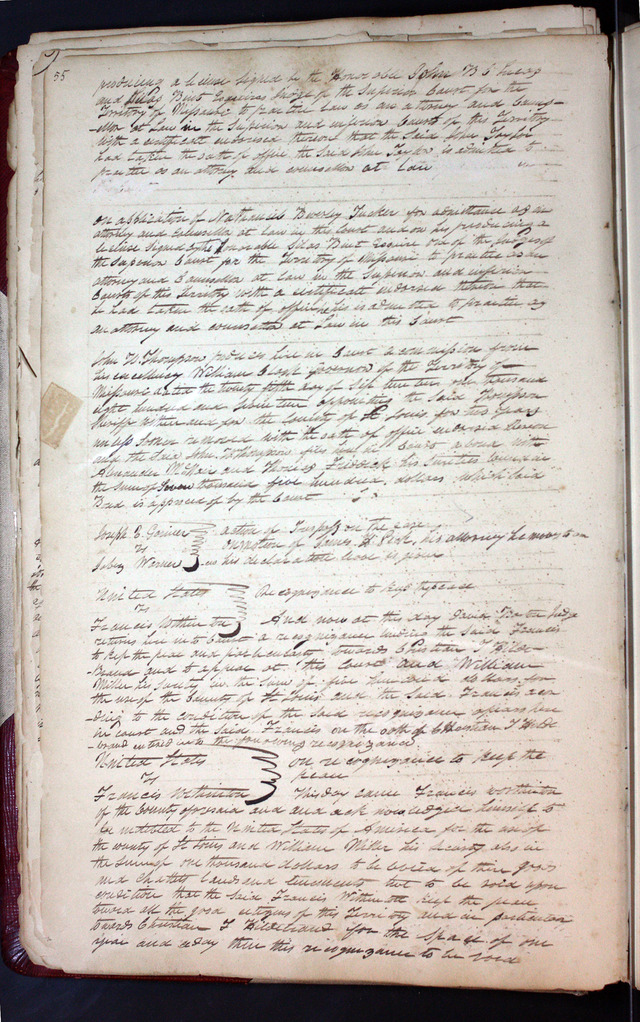 55
producing a license signed by the Honorable John B C Lucas
and Silas Bent Esquires Judges of the Superior Court for the
Territory of Missouri to practice law as an attorney and Coun-
-sellor at Law in the Superior and inferior Courts of this Territory
with a certificate endorsed thereon that the said John Taylor
had taken the oath of office the said John Taylor is admitted to
practice as an attorney and counsellor at Law
on application of Nathaniel Beverly Tucker for admittance as an
attorney and Counsellor at law in this Court and on his producing a
license signed by the Honorable Silas Bent Esquire one of the judges of
the Superior Court for the Territory of Missouri to practice as an
attorney and Counsellor at law in the Superior and inferior
Courts of this Territory with a certificate endorsed thereon that
he had taken the oath of office he is admitted to practice as
an attorney and counsellor at Law in this Court
John W Thompson produces here in Court a commission from
his excellency William Clark governor of the Territory of
Missouri dated the twenty fifth day of September one thousand
eight hundred and appointing the said Thompson
Sheriff within and for the County of St Louis for two years
unless sooner removed with the oath of office endorsed thereon
and the said John W Thompson files in Court a bond with
Alexander McNair and Thomas his Sureties bound in
the sum of Seven thousand five hundred dollars which said
Bond is approved of by the Court
Joseph E Garnier action of Trespass on the case
vs on motion of James H Peck, his attorney he moves to am
Jabez Warner his declaration leave is given
United States Recognizance to keep the peace
vs
Francis Withington And now at this day David Judge
returns here into Court a recognizance binding the said Francis
to keep the peace and particularly towards Christian T Hilde-
Brand and to appear at this Court and William
Miller his surety in the sum of five hundred dollars for
the use of the County of St Louis and the said Francis accor
ding to the condition of the said recognizance appears here
in court and the said Francis on the oath of Christian T Hilde
-brand entered into the following recognizance
United States on recognizance to keep the
vs peace
Francis Withington This day came Francis Worthington
of the County aforesaid and and acknowledged himself to
be indebted to the United States of America for the use of
the county of St Louis and William Miller his security also in
the sum of one thousand dollars to be levied of their goods
and chattels lands and tenements but to be void upon
condition that the said Francis Withington keep the peace
toward all the good citizens of this Territory and in particular
towards Christian T Hildebrand for the space of one
year and a day then this recognizance to be void